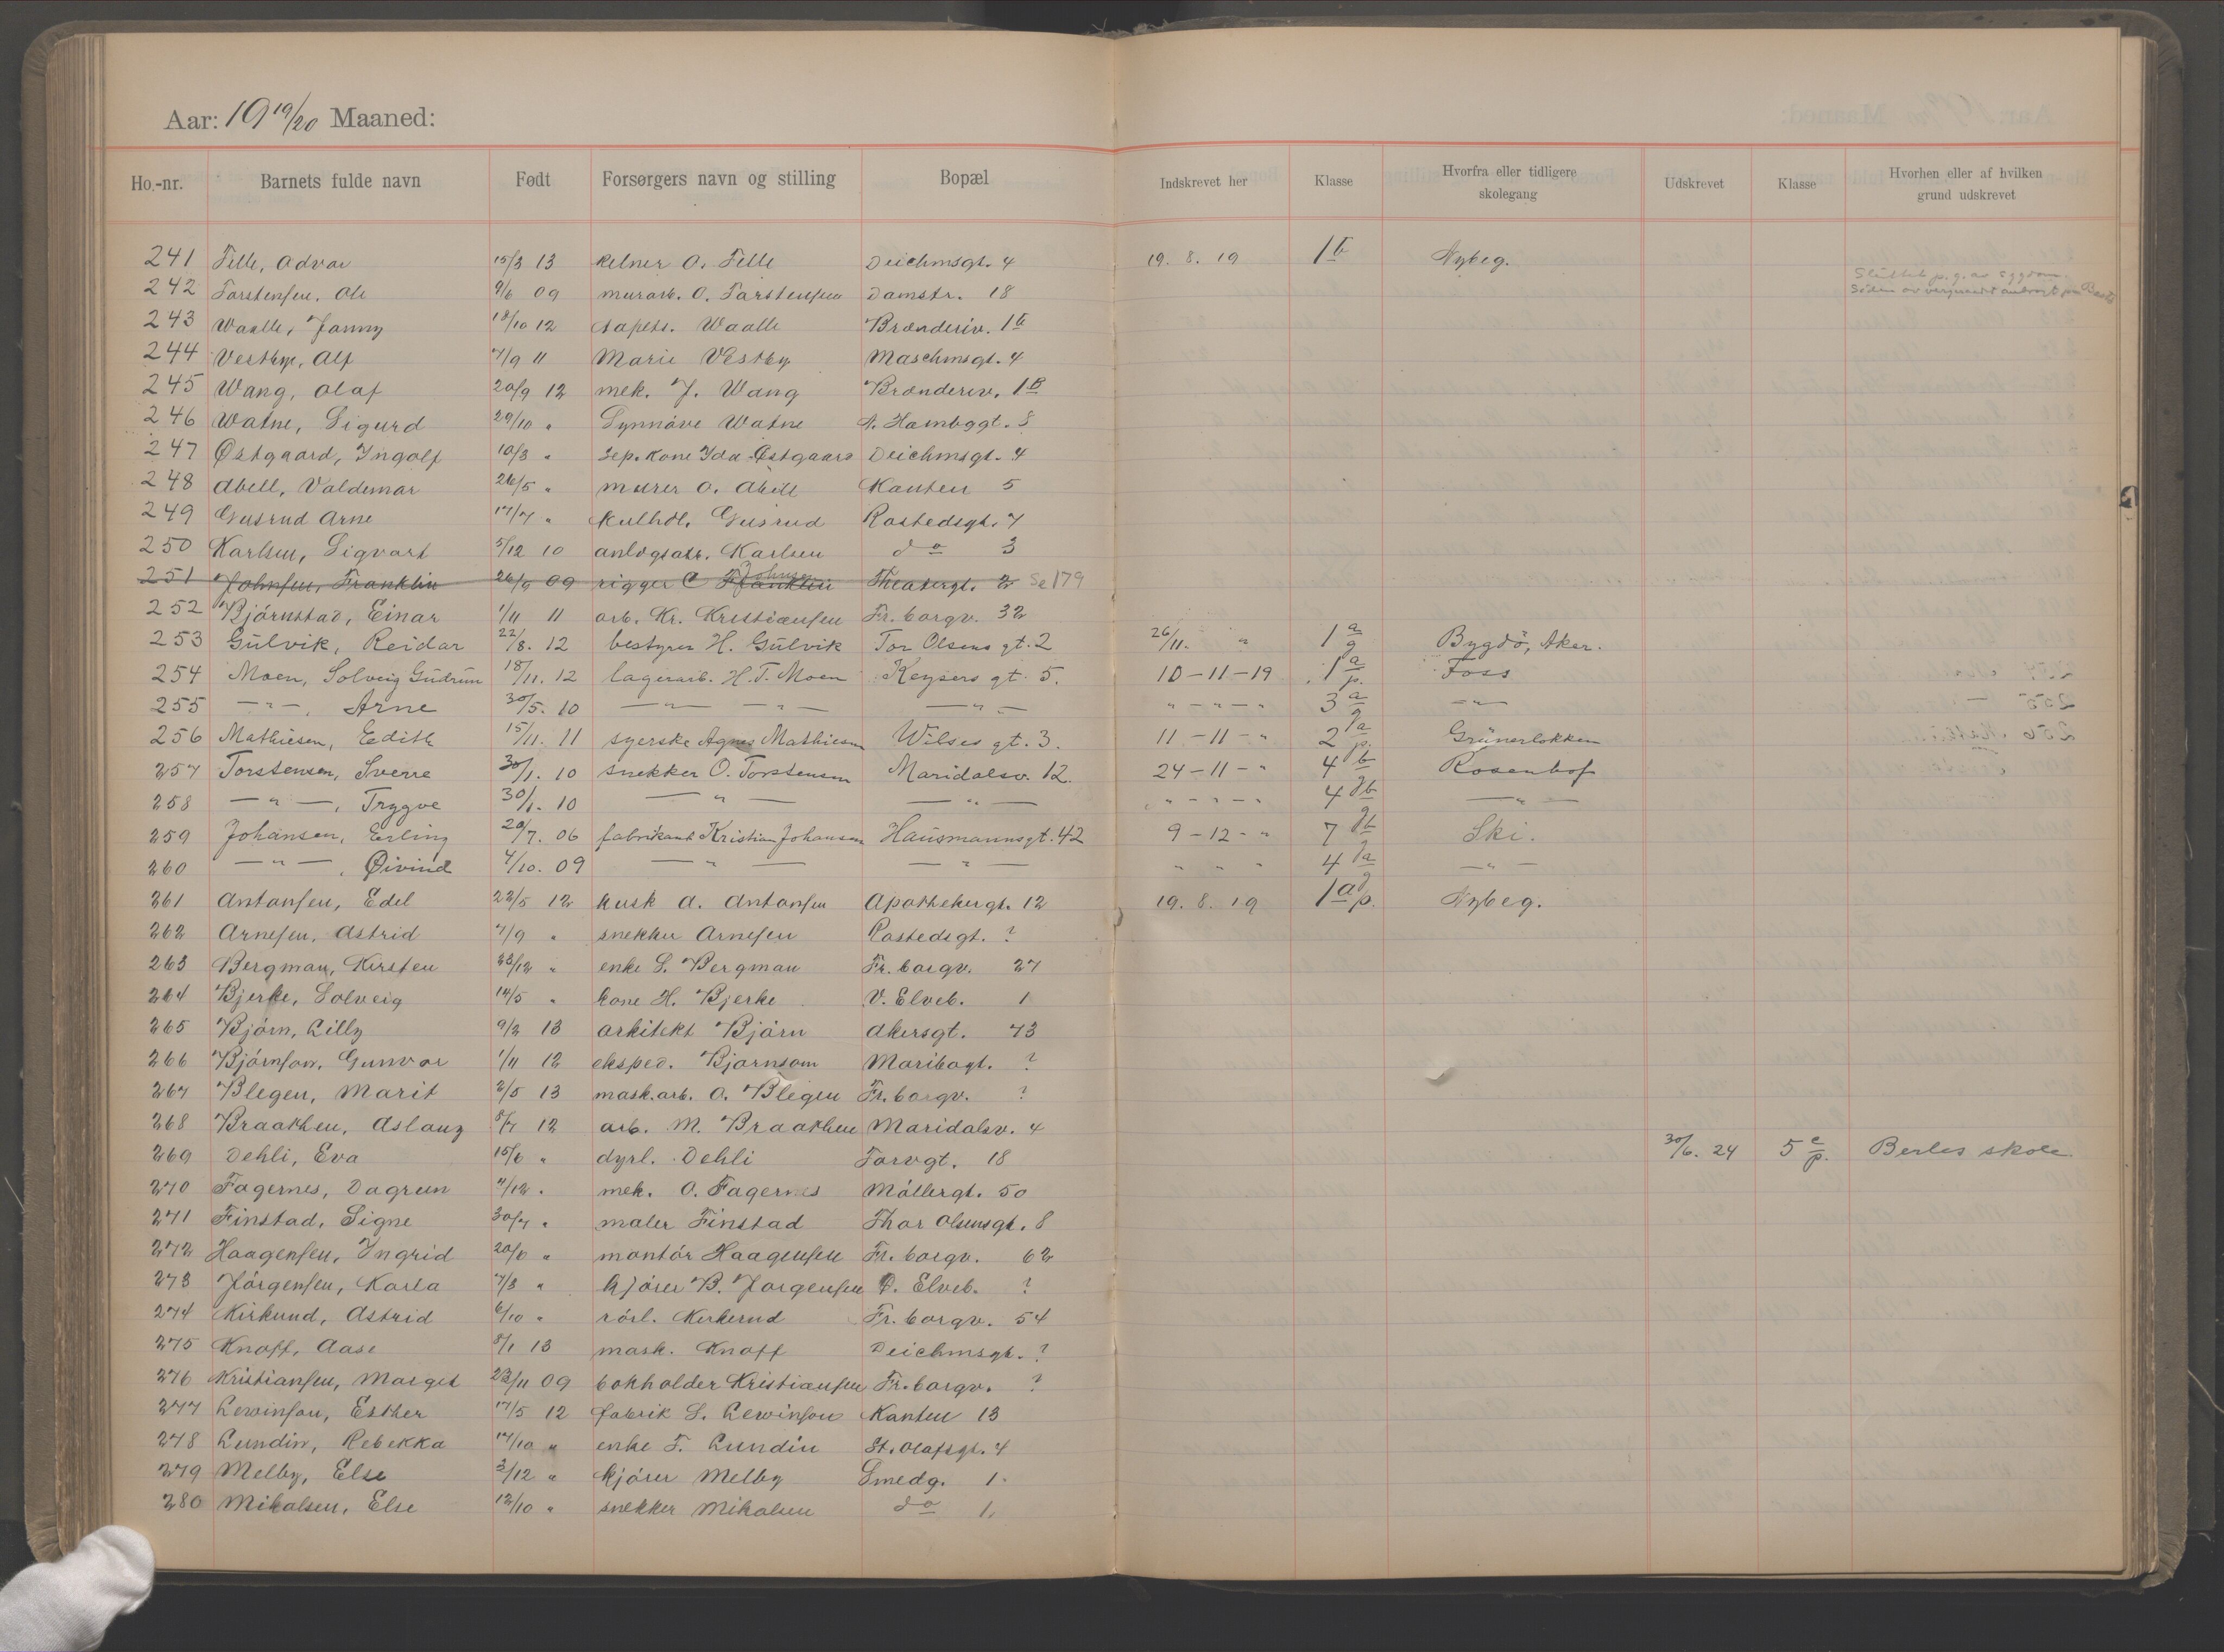 Aar: 19 19/20 Maaned:
Ho.-nr. Barnets fulde navn Født Forsørgers navn og stilling Bopæl Indskrevet her Klasse Hvorfra eller tidligere skolegang Udskrevet Klasse Hvorhen eller af hvilken grund udskrevet
241 Felle, Advar 15/3 13 kelner O. Felle Deichmsgt. 4 19. 8. 19 1 b Nybeg.
242 Torstensen, Ole 9/6 09 murarb. O. Torstensen Damstr. 18 Sluttet p.g. av sygdom.
243 Waalle, Jonny 18/10 12 tapets. Waalle Brænderiv. 1 b
244 Vestby, Alf 7/9 11 Marie Vestby Maschmsgt. 4
245 Wang, Olaf 20/9 12 mek. J. Wang Brænderiv. 1 B
246 Watne, Sigurd 29/10 " Synnöve Watne A. Hambggt. 8
247 Østgaard, Ingolf 10/3 " sep. kone Ida Østgaard Deichmsgt. 4
248 Abell, Valdemar 26/5 " murer O. Abell Kanten 5
249 Gusrud Arne 17/7 " kulhdl. Gusrud Rostedsgt. 7
250 Karlsen, Sigvart 5/12 10 anlægsarb. Karlsen do 3
251 Johnsen, Franklin 26/9 09 rigger C Johnsen Franklin Theatergt. 2 Se 179
252 Bjørnstad, Einar 1/11 11 arb. Kr. Kristiansen Fr. borgv. 32
253 Gulvik, Reidar 22/8. 12 bestyrer H. Gulvik Tor Olsens gt. 2 26/11. " 1 a g Bygdö, Aker.
254 Moen, Solveig Gudrun 18/11. 12 lagerarb. H. T. Moen Keysers gt. 5. 10-11-19 1 a p. Foss
255 — " —, Arne 30/5. 10 — " — — " — — " — " - " - " 3 a g — " —
256 Mathiesen, Edith 15/11. 11 syerske Agnes Mathiesen Wilses gt. 3. 11-11-" 2 a p. Grünerløkken
257 Torstensen, Sverre 30/1. 10 snekker O. Torstensen Maridalsv. 12. 24-11-" 4 b g Rosenhof
258 — " —, Trygve 30/1. 10 — " — — " — " - " - " 4 b g — " —
259 Johansen, Erling 20/7. 06 fabrikant Kristian Johansen Hausmannsgt. 42 9-12-" 7 b g Ski.
260 — " —, Øivind 4/10. 09 — " — — " — " " " 4 a g — " —
261 Antonsen, Edel 22/5 12 kusk A. Antonsen Apothekergt. 12 19. 8. 19 1 a p. Nybeg.
262 Arnesen, Astrid 7/9 " snekker Arnesen Rostedsgt. ?
263 Bergman, Kirsten 23/12 " enke S. Bergman Fr. borgv. 27
264 Bjerke, Solveig 14/5 " kone H. Bjerke V. Elveb. 1
265 Bjørn, Lilly 9/2 13 arkitekt Bjørn Akersgt. 73
266 Bjørnson, Gunvor 1/11 12 eksped. Bjørnsom Maribogt. ?
267 Blegen, Marit 2/5 13 mask.arb. O. Blegen Fr. borgv. ?
268 Braathen, Aslaug 8/7 12 arb. M. Braathen Maridalsv. 4
269 Dehli, Eva 15/6 " dyrl. Dehli Torvgt. 18 30/6. 24 5 c p. Berles skole
270 Fagernes, Dagrun 4/12 " mek. O. Fagernes Møllergt. 50
271 Finstad, Signe 30/7 " maler Finstad Thor Olsensgt. 8
272 Haagensen, Ingrid 20/6 " montör Haagensen Fr. borgv. 62
273 Jørgensen, Karla 7/3 " kjører B. Jørgensen Ø. Elveb. ?
274 Kirkerud, Astrid 6/10 " rørl. Kirkerud Fr. borgv. 54
275 Knoff, Aase 8/1 13 mask. Knoff Deichmsgt. ?
276 Kristiansen, Marget 23/11 09 bokholder Kristiansen Fr. borgv. ?
277 Lewinson, Esther 17/5 12 fabrik S. Lewinson Kanten 13
278 Lundin, Rebekka 17/10 " enke F. Lundin St. Olafsgt. 4
279 Melby, Else 3/12 " kjører Melby Smedg. 1.
280 Mikalsen, Else 12/10 " snekker Mikalsen do 1.